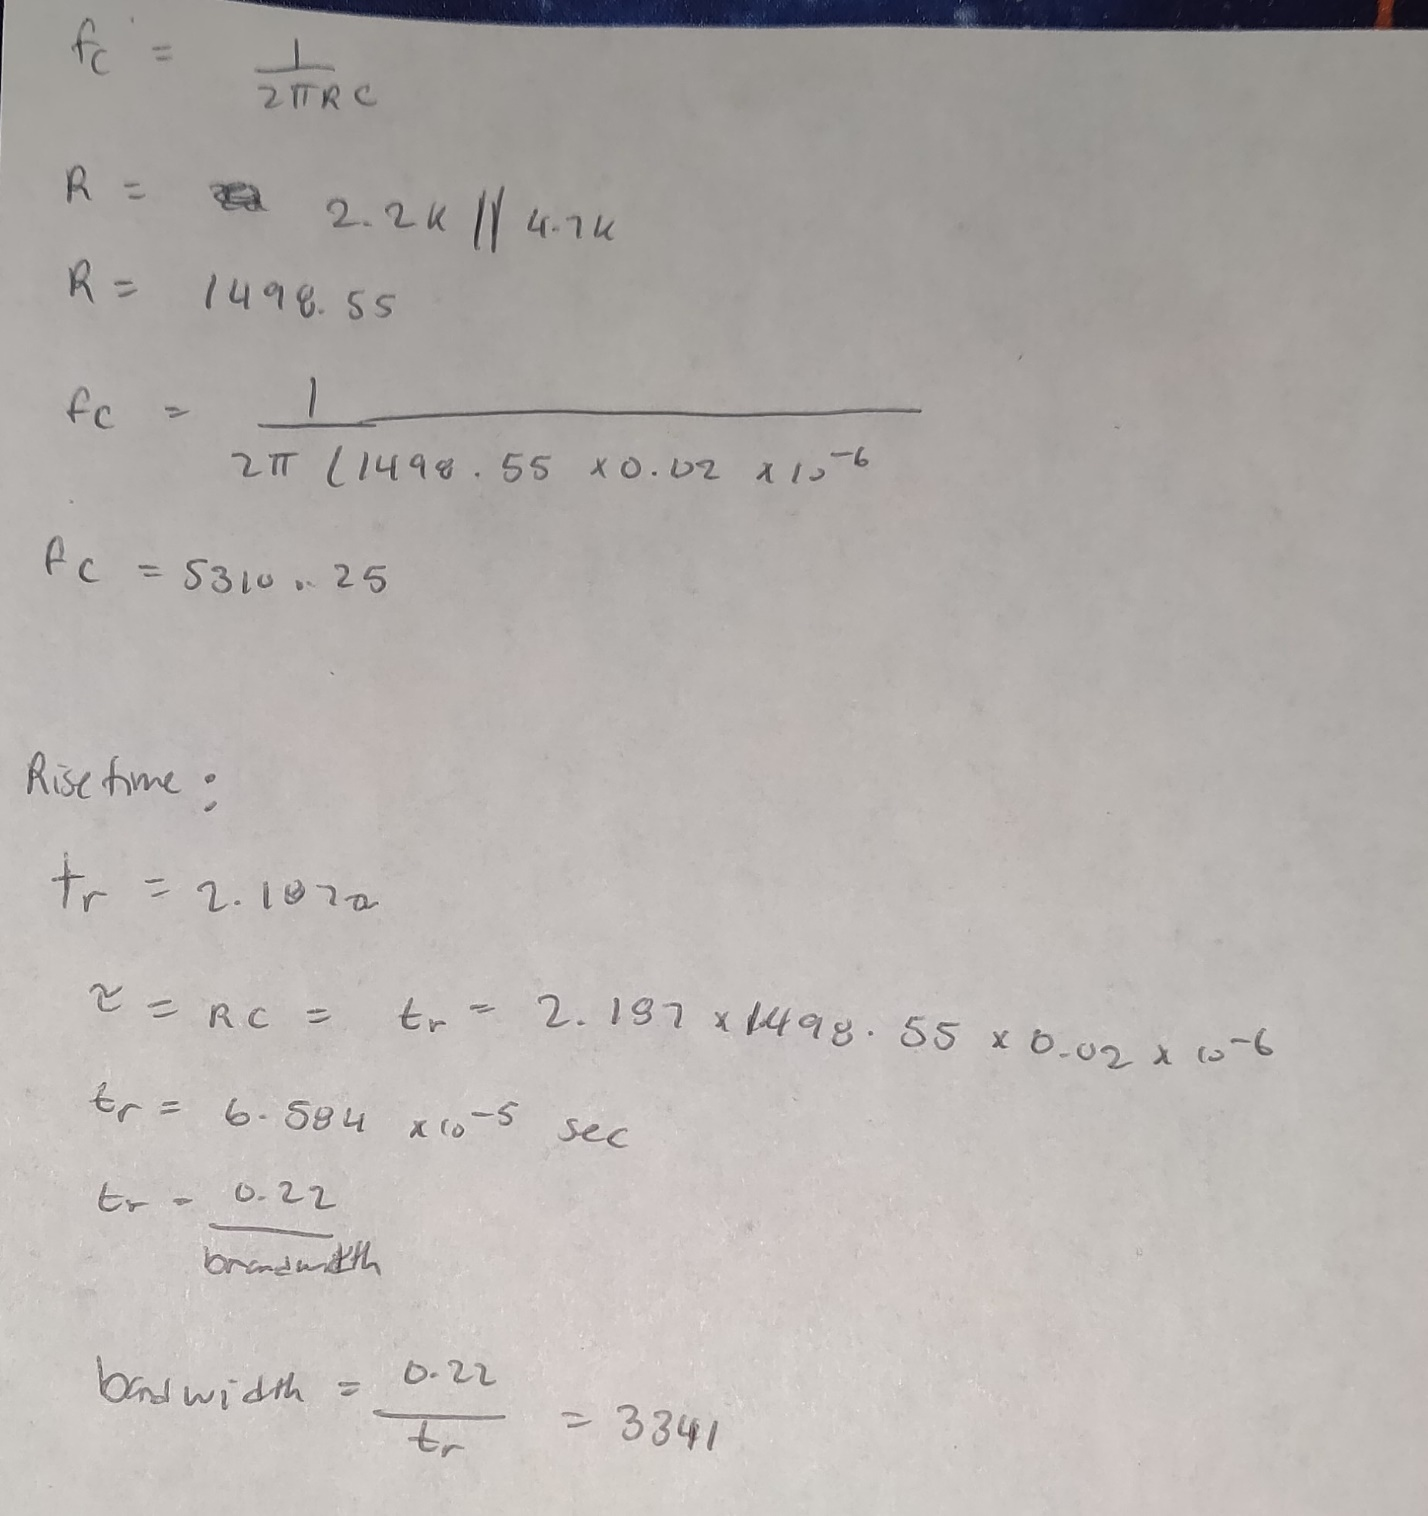 fc = 1
2πRC
R = 2.2K || 4.7K
R = 1498.55
fc = 1
2π (1498.55 x 0.02 x 10-6
fc = 5310.25
Rise time :
tr = 2.197τ
τ = RC = tr = 2.197 x 1498.55 x 0.02 x 10-6
tr = 6.584 x10-5 sec
tr = 0.22
bandwidth
bandwidth = 0.22
tr = 3341